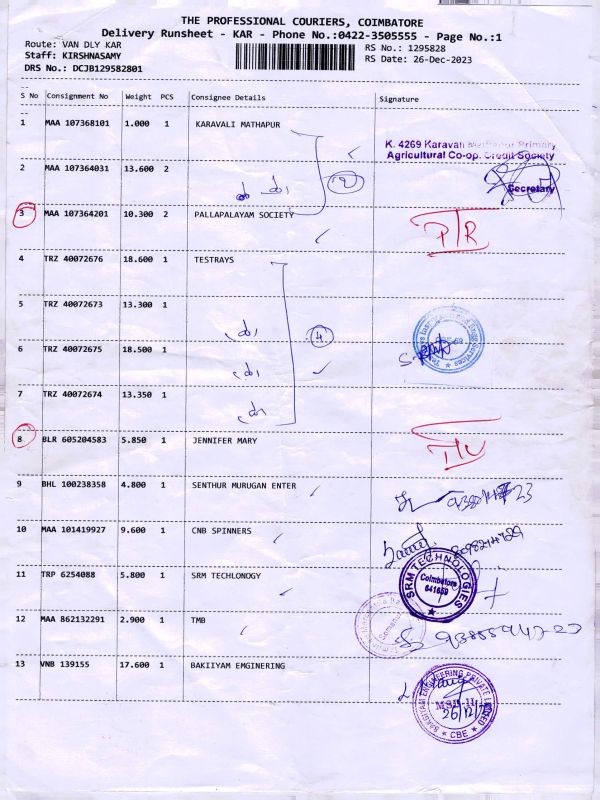 THE PROFESSIONAL COURIERS, COIMBATORE
Delivery Runsheet - KAR - Phone No.:0422-3505555 - Page No.:1
Route: VAN DLY KAR
RS No.: 1295828
Staff: KIRSHNASAMY
RS Date: 26-Dec-2023
DRS No.: DCJB129582801
S No Consignment No Weight PCS Consignee Details Signature
1 MAA 107368101 1.000 1 KARAVALI MATHAPUR
K. 4269 Karavali Mathapur Primary
Agricultural Co-op. Credit Society
2 MAA 107364031 13.600 2
2
Secretary
3 MAA 107364201 10.300 2 PALLAPALAYAM SOCIETY
4 TRZ 40072676 18.600 1 TESTRAYS
5 TRZ 40072673 13.300 1
4
6 TRZ 40072675 18.500 1
7 TRZ 40072674 13.350 1
8 BLR 605204583 5.850 1 JENNIFER MARY
9 BHL 100238358 4.800 1 SENTHUR MURUGAN ENTER
10 MAA 101419927 9.600 1 CNB SPINNERS
11 TRP 6254088 5.800 1 SRM TECHLONOGY
SRM TECHNOLOGIES
Coimbatore
641659
12 MAA 862132291 2.900 1 TMB
13 VNB 139155 17.600 1 BAKIIYAM EMGINERING
BAKGIYAM ENGINEERING PRIVATE LIMITED
26/12/23
CBE